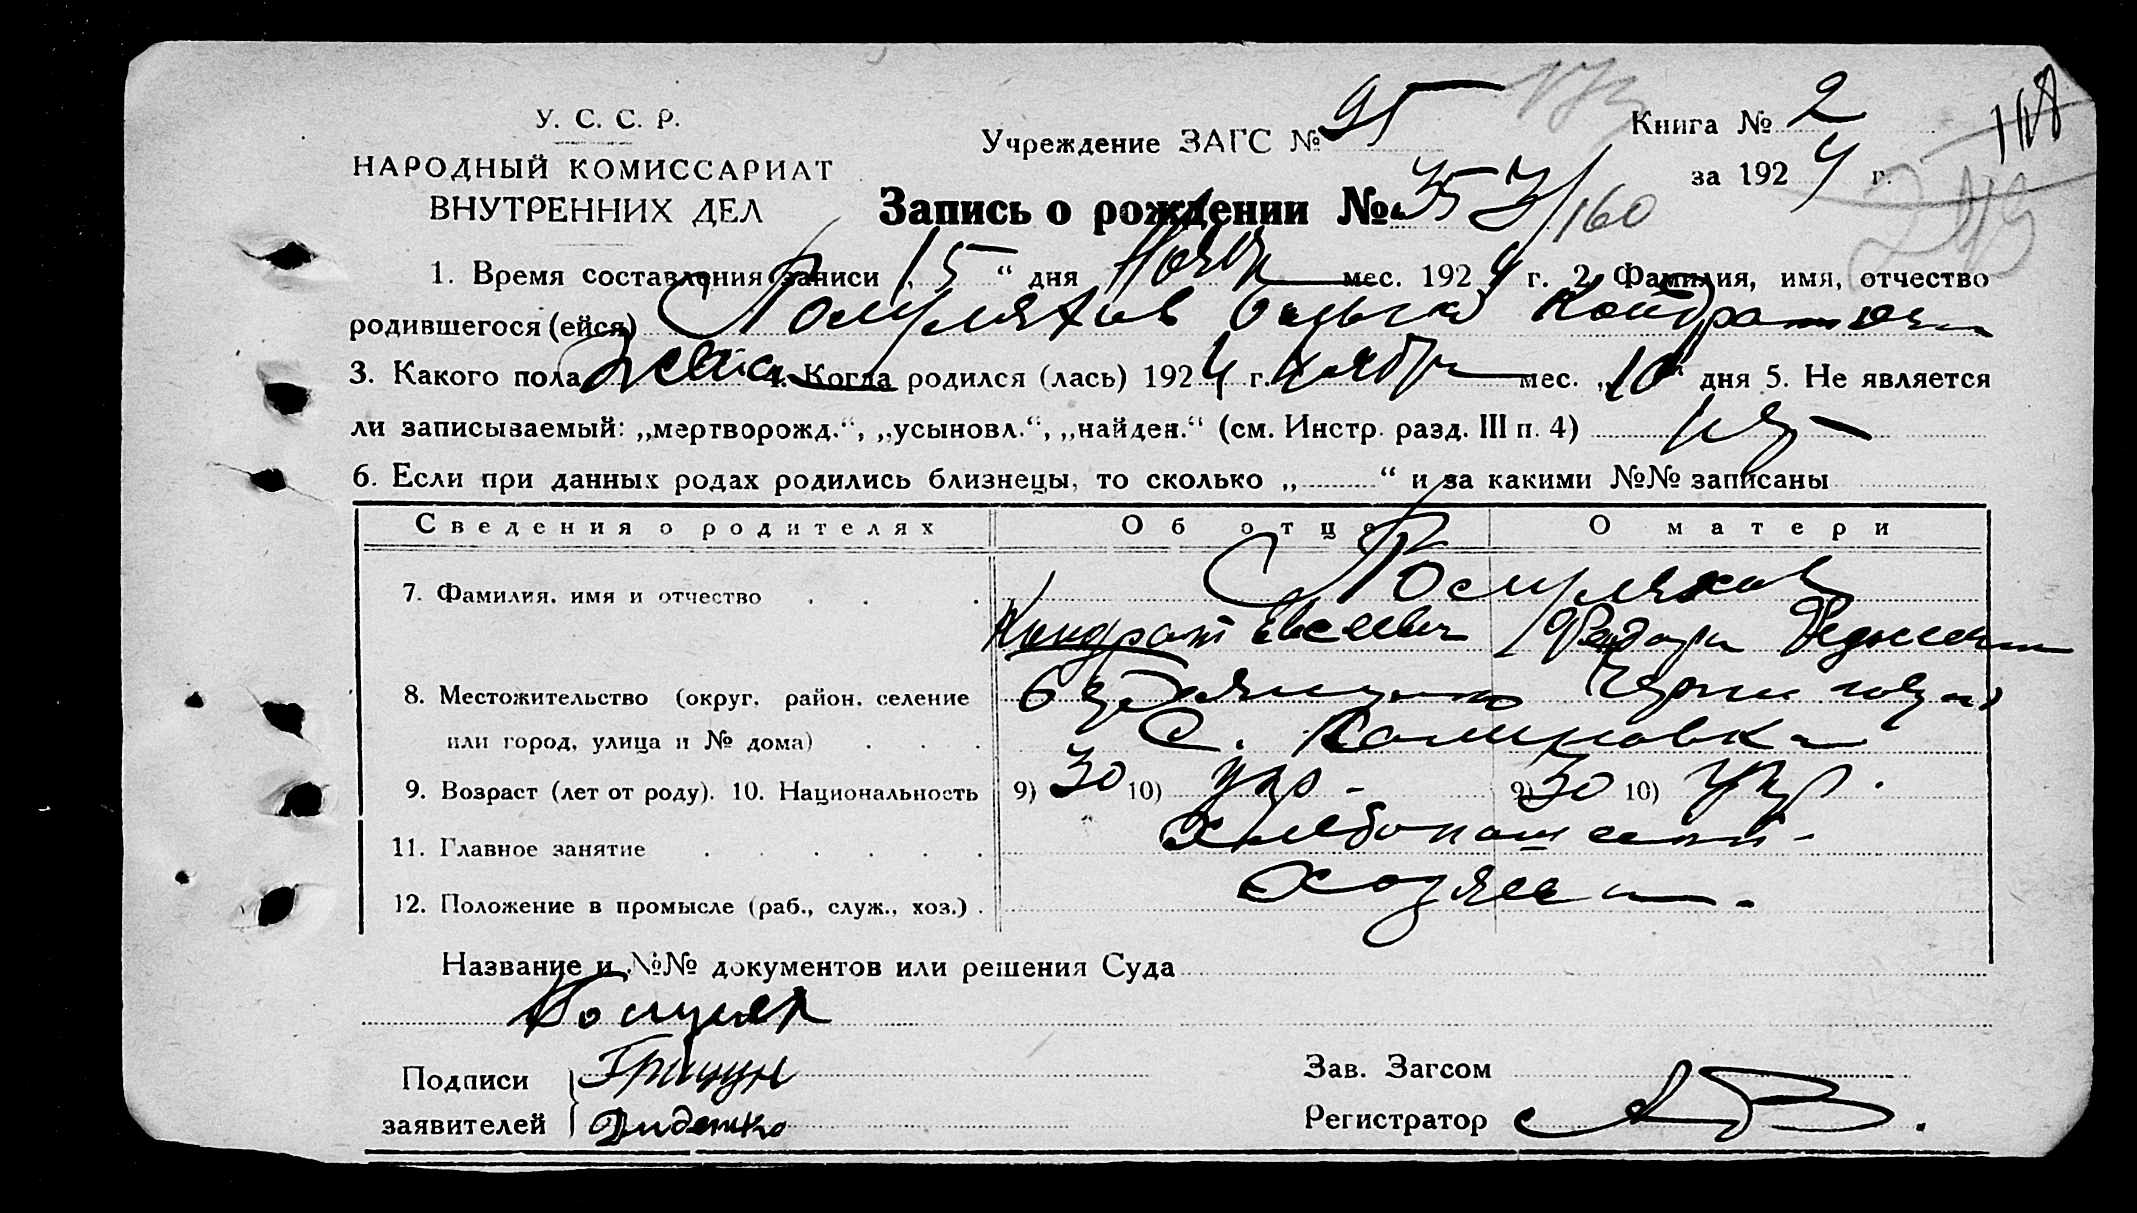 У. С. С. Р.
НАРОДНЫЙ КОМИССАРИАТ
ВНУТРЕННИХ ДЕЛ
Учреждение ЗАГС № 95
Книга № 2
168
за 1924 г.
Запись о рождении № 353/160
1. Время составления записи „15“ дня Нояб мес. 1924 г. 2. Фамилия, имя, отчество
родившегося (ейся) Кондратович
3. Какого пола Жен 4. Когда родился (лась) 1924 г. ноябр мес. „10“ дня 5. Не является
ли записываемый: „мертворожд.“, „усыновл.“, „найден.“ (см. Инстр. разд. III п. 4) нет
6. Если при данных родах родились близнецы, то сколько „ “ и за какими №№ записаны
Сведения о родителях Об отце О матери
7. Фамилия, имя и отчество
Кондрат Евсеевич
8. Местожительство (округ, район, селение
или город, улица и № дома) с. Калиновка
9. Возраст (лет от роду). 10. Национальность 9) 30 10) укр - 9) 30 10) укр.
11. Главное занятие Хлебопашество
12. Положение в промысле (раб., служ., хоз.) Хозяева
Название и №№ документов или решения Суда
Подписи
заявителей
Грицун
Диденко
Зав. Загсом
Регистратор